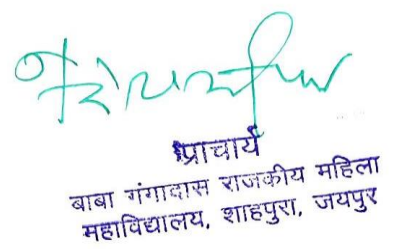 प्राचार्य
बाबा गंगादास राजकीय महिला
महाविद्यालय, शाहपुरा, जयपुर